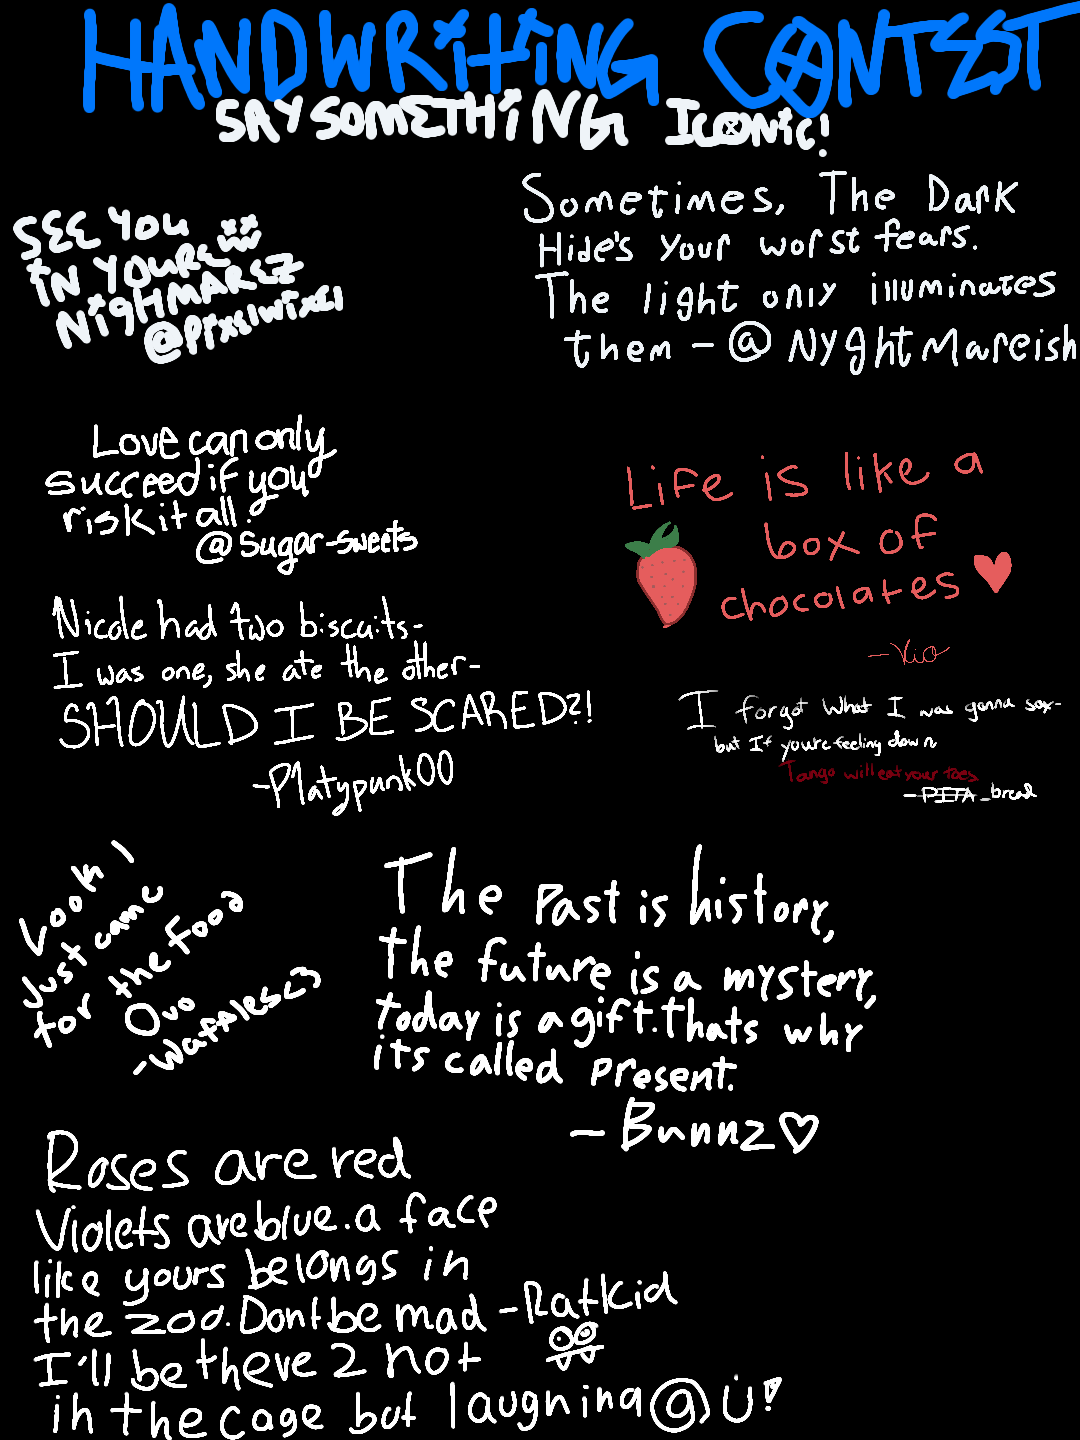 HANDWRiTiNG CONTEST
SAY SOMETHiNG ICONiC!
SEE YOU
iN YOURE
NiGHTMAREZ
Sometimes, The Dark
Hide's your worst fears.
The light only illuminates
them - @NyghtMareish
Love can only
succeed if you
risk it all.
@Sugar-sweets
Life is like a
box of
chocolates ♥
-Kio
Nicole had two biscuits-
I was one, she ate the other-
SHOULD I BE SCARED?!
-Platypunk00
I forgot what I was gonna say-
but If youre feeling down
Tango will eat your toes
-PITA_bread
Look I
Just came
for the food
OvO
-waffles<3
The Past is history,
the future is a mystery,
today is a gift. thats why
its called present.
- Bunnz♡
Roses are red
Violets are blue. a face
like yours belongs in
the zoo. Dont be mad -Ratkid
I'll be there 2 not
in the cage but laugning @ U!